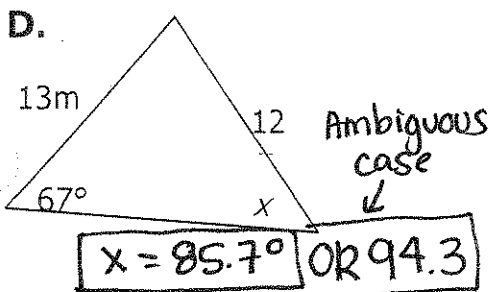 D.
13m
12
Ambiguous
case
67°
x
x = 85.7° OR 94.3